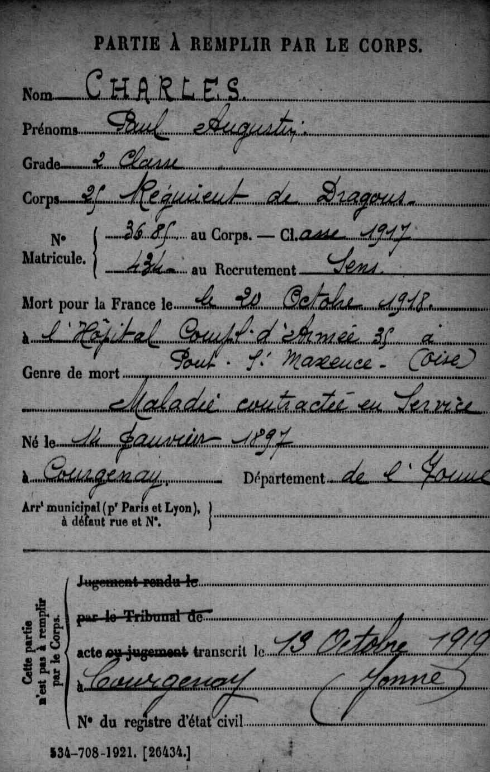 PARTIE À REMPLIR PAR LE CORPS.
Nom CHARLES.
Prénoms Paul Augustin.
Grade 2 Classe
Corps 25 Régiment de Dragons
N° Matricule. { 3685 au Corps. — Classe 1917
434 au Recrutement Sens
Mort pour la France le le 20 Octobre 1918.
à l'Hôpital Compl. d'Armée 35 à
Pont-St Maxence - (Oise)
Genre de mort
Maladie contractée en Service
Né le 14 Janvier 1897
à Courgenay Département de l'Yonne
Arrt municipal (pr Paris et Lyon), à défaut rue et N°. }
Cette partie n'est pas à remplir par le Corps. {
Jugement rendu le
par le Tribunal de
acte ou jugement transcrit le 13 Octobre 1919
à Courgenay (Yonne)
N° du registre d'état civil
534-708-1921. [26434.]